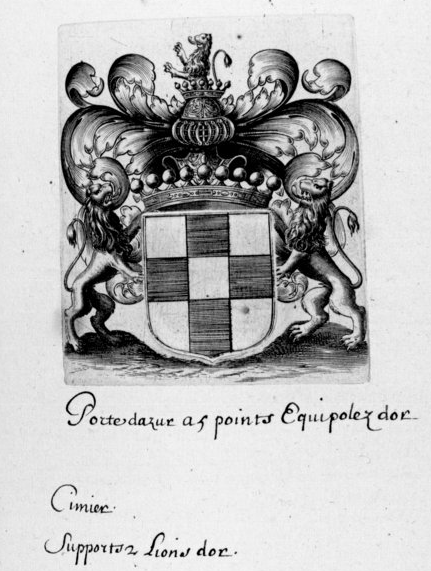 Porte dazur a 5 points Equipolez dor
Cimier.
Supports 2 Lions dor.